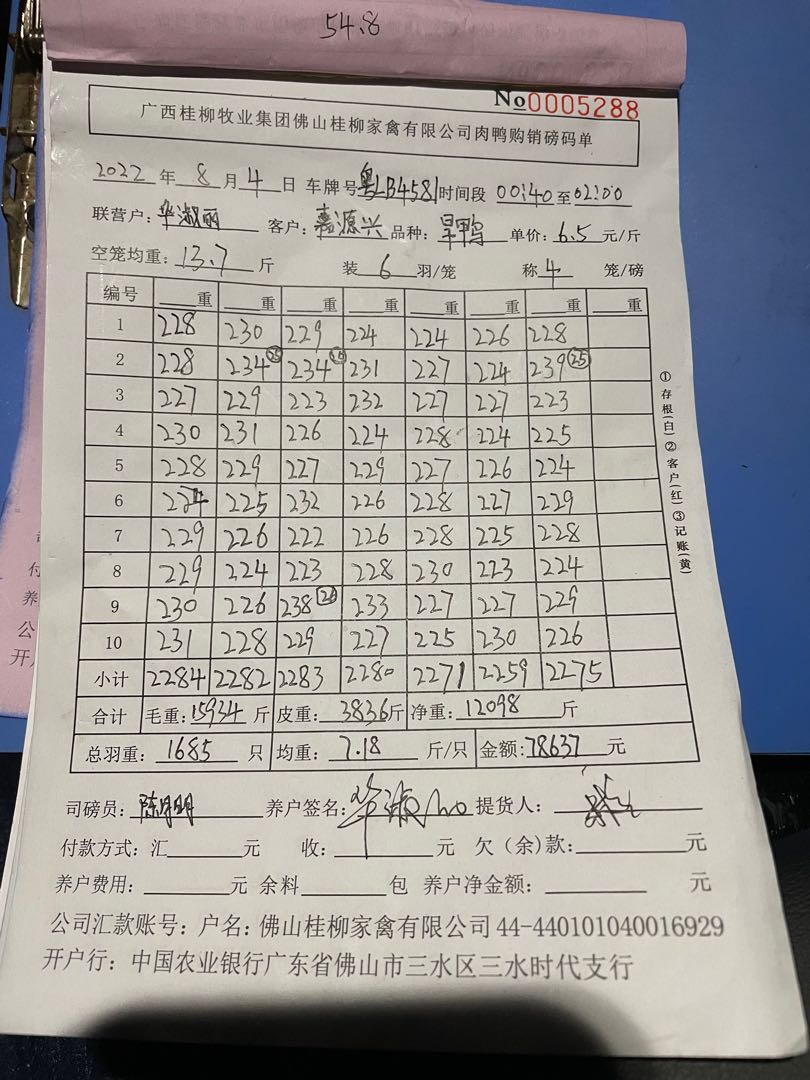 54.8
No0005288
广西桂柳牧业集团佛山桂柳家禽有限公司肉鸭购销磅码单
2022 年 8 月 4 日 车牌号 粤LB4581 时间段 00:40 至 02:00
联营户: 华淑丽 客户: 嘉源兴 品种: 旱鸭 单价: 6.5 元/斤
空笼均重: 13.7 斤 装 6 羽/笼 称 4 笼/磅
编号 重 重 重 重 重 重 重 重
1 228 230 229 224 224 226 228
2 228 234 234 231 227 224 239 25
3 227 229 223 232 227 227 223
4 230 231 226 224 228 224 225
5 228 229 227 229 227 226 224
6 224 225 232 226 228 227 229
7 229 226 222 226 228 225 228
8 229 224 223 228 230 223 224
9 230 226 238 26 233 227 227 229
10 231 228 229 227 225 230 226
小计 2284 2282 2283 2280 2271 2259 2275
合计 毛重: 15934 斤 皮重: 3836 斤 净重: 12098 斤
总羽重: 1685 只 均重: 7.18 斤/只 金额: 78637 元
司磅员: 养户签名: 提货人:
付款方式: 汇 元 收: 元 欠(余)款: 元
养户费用: 元 余料 包 养户净金额: 元
公司汇款账号: 户名: 佛山桂柳家禽有限公司 44-440101040016929
开户行: 中国农业银行广东省佛山市三水区三水时代支行
①存根(白)②客户(红)③记账(黄)